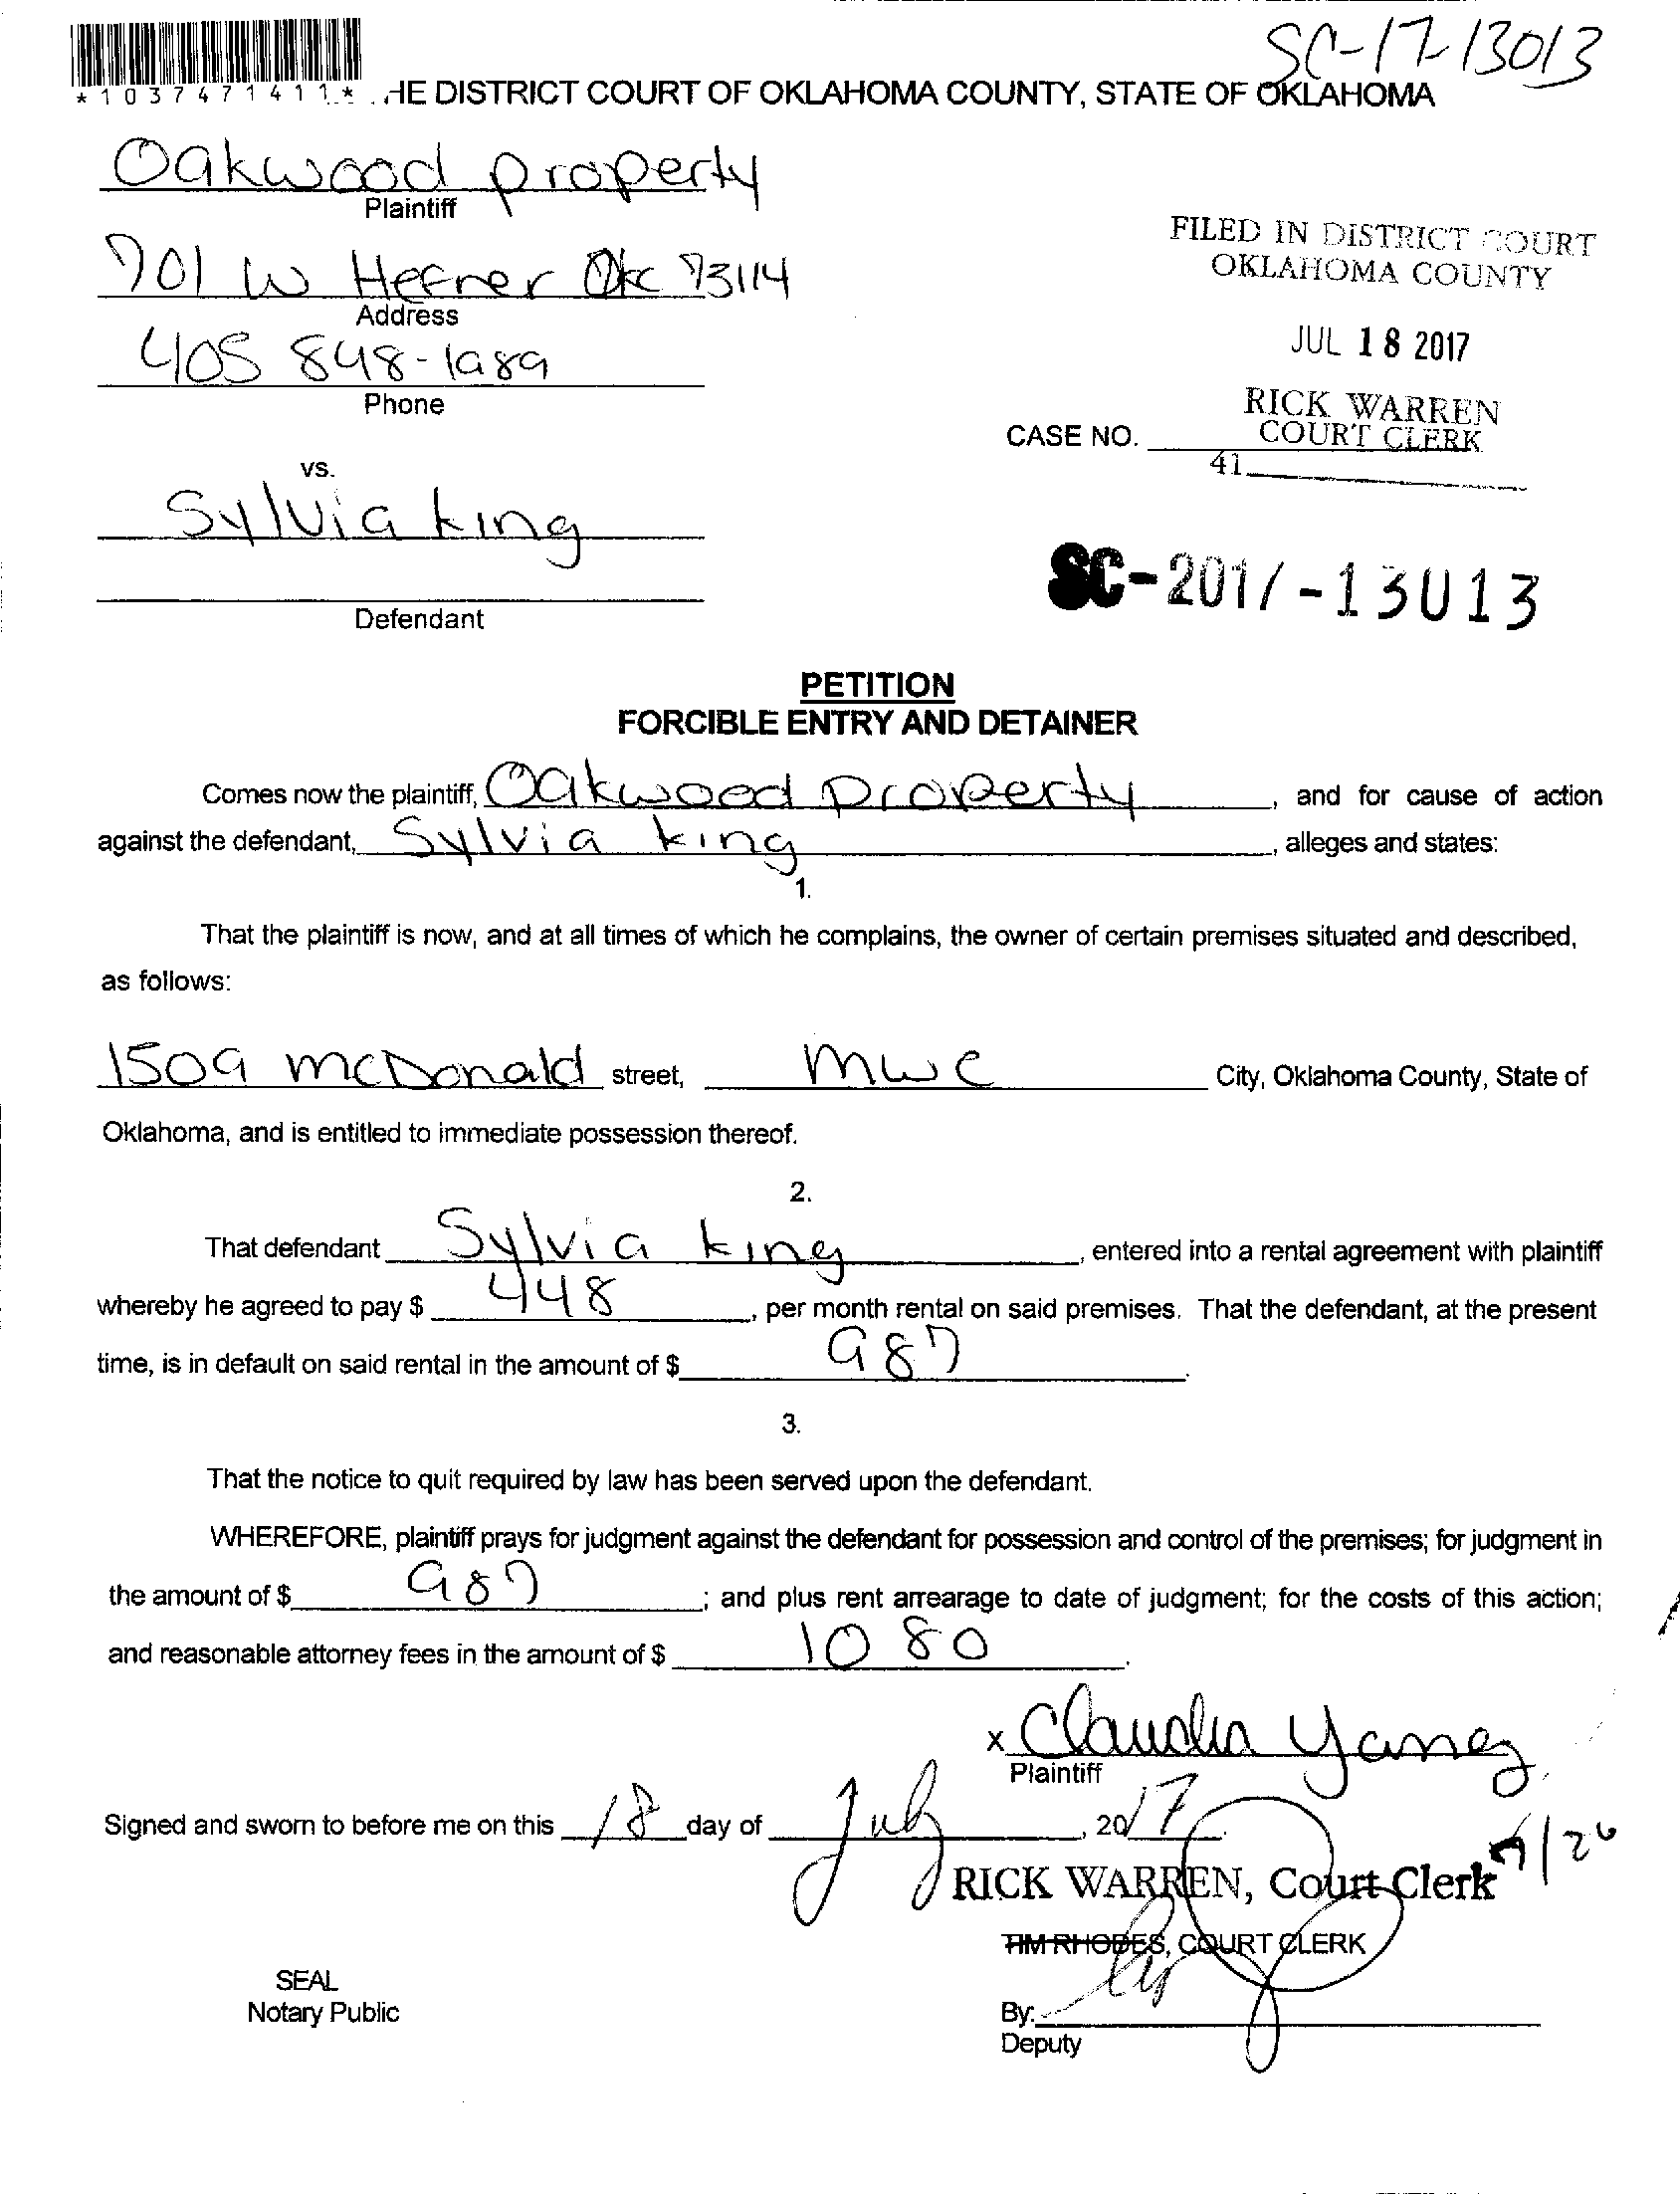 SC-17-13013
* 1 0 3 7 4 7 1 4 1 1 *
HE DISTRICT COURT OF OKLAHOMA COUNTY, STATE OF OKLAHOMA
Oakwood property
Plaintiff
701 W Hefner Okc 73114
Address
405 848-1989
Phone
FILED IN DISTRICT COURT
OKLAHOMA COUNTY
JUL 18 2017
RICK WARREN
COURT CLERK
CASE NO.
41
vs.
Sylvia king
Defendant
SC-2017-13013
PETITION
FORCIBLE ENTRY AND DETAINER
Comes now the plaintiff, Oakwood property, and for cause of action
against the defendant, Sylvia king, alleges and states:
1.
That the plaintiff is now, and at all times of which he complains, the owner of certain premises situated and described,
as follows:
1509 mcDonald street, mwc City, Oklahoma County, State of
Oklahoma, and is entitled to immediate possession thereof.
2.
That defendant Sylvia king, entered into a rental agreement with plaintiff
whereby he agreed to pay $ 448, per month rental on said premises. That the defendant, at the present
time, is in default on said rental in the amount of $ 987.
3.
That the notice to quit required by law has been served upon the defendant.
WHEREFORE, plaintiff prays for judgment against the defendant for possession and control of the premises; for judgment in
the amount of $ 987; and plus rent arrearage to date of judgment; for the costs of this action;
and reasonable attorney fees in the amount of $ 1080.
x Claudia Yanez
Plaintiff
Signed and sworn to before me on this 18 day of July, 2017.
RICK WARREN, Court Clerk
TIM RHODES, COURT CLERK
SEAL
Notary Public
By:
Deputy